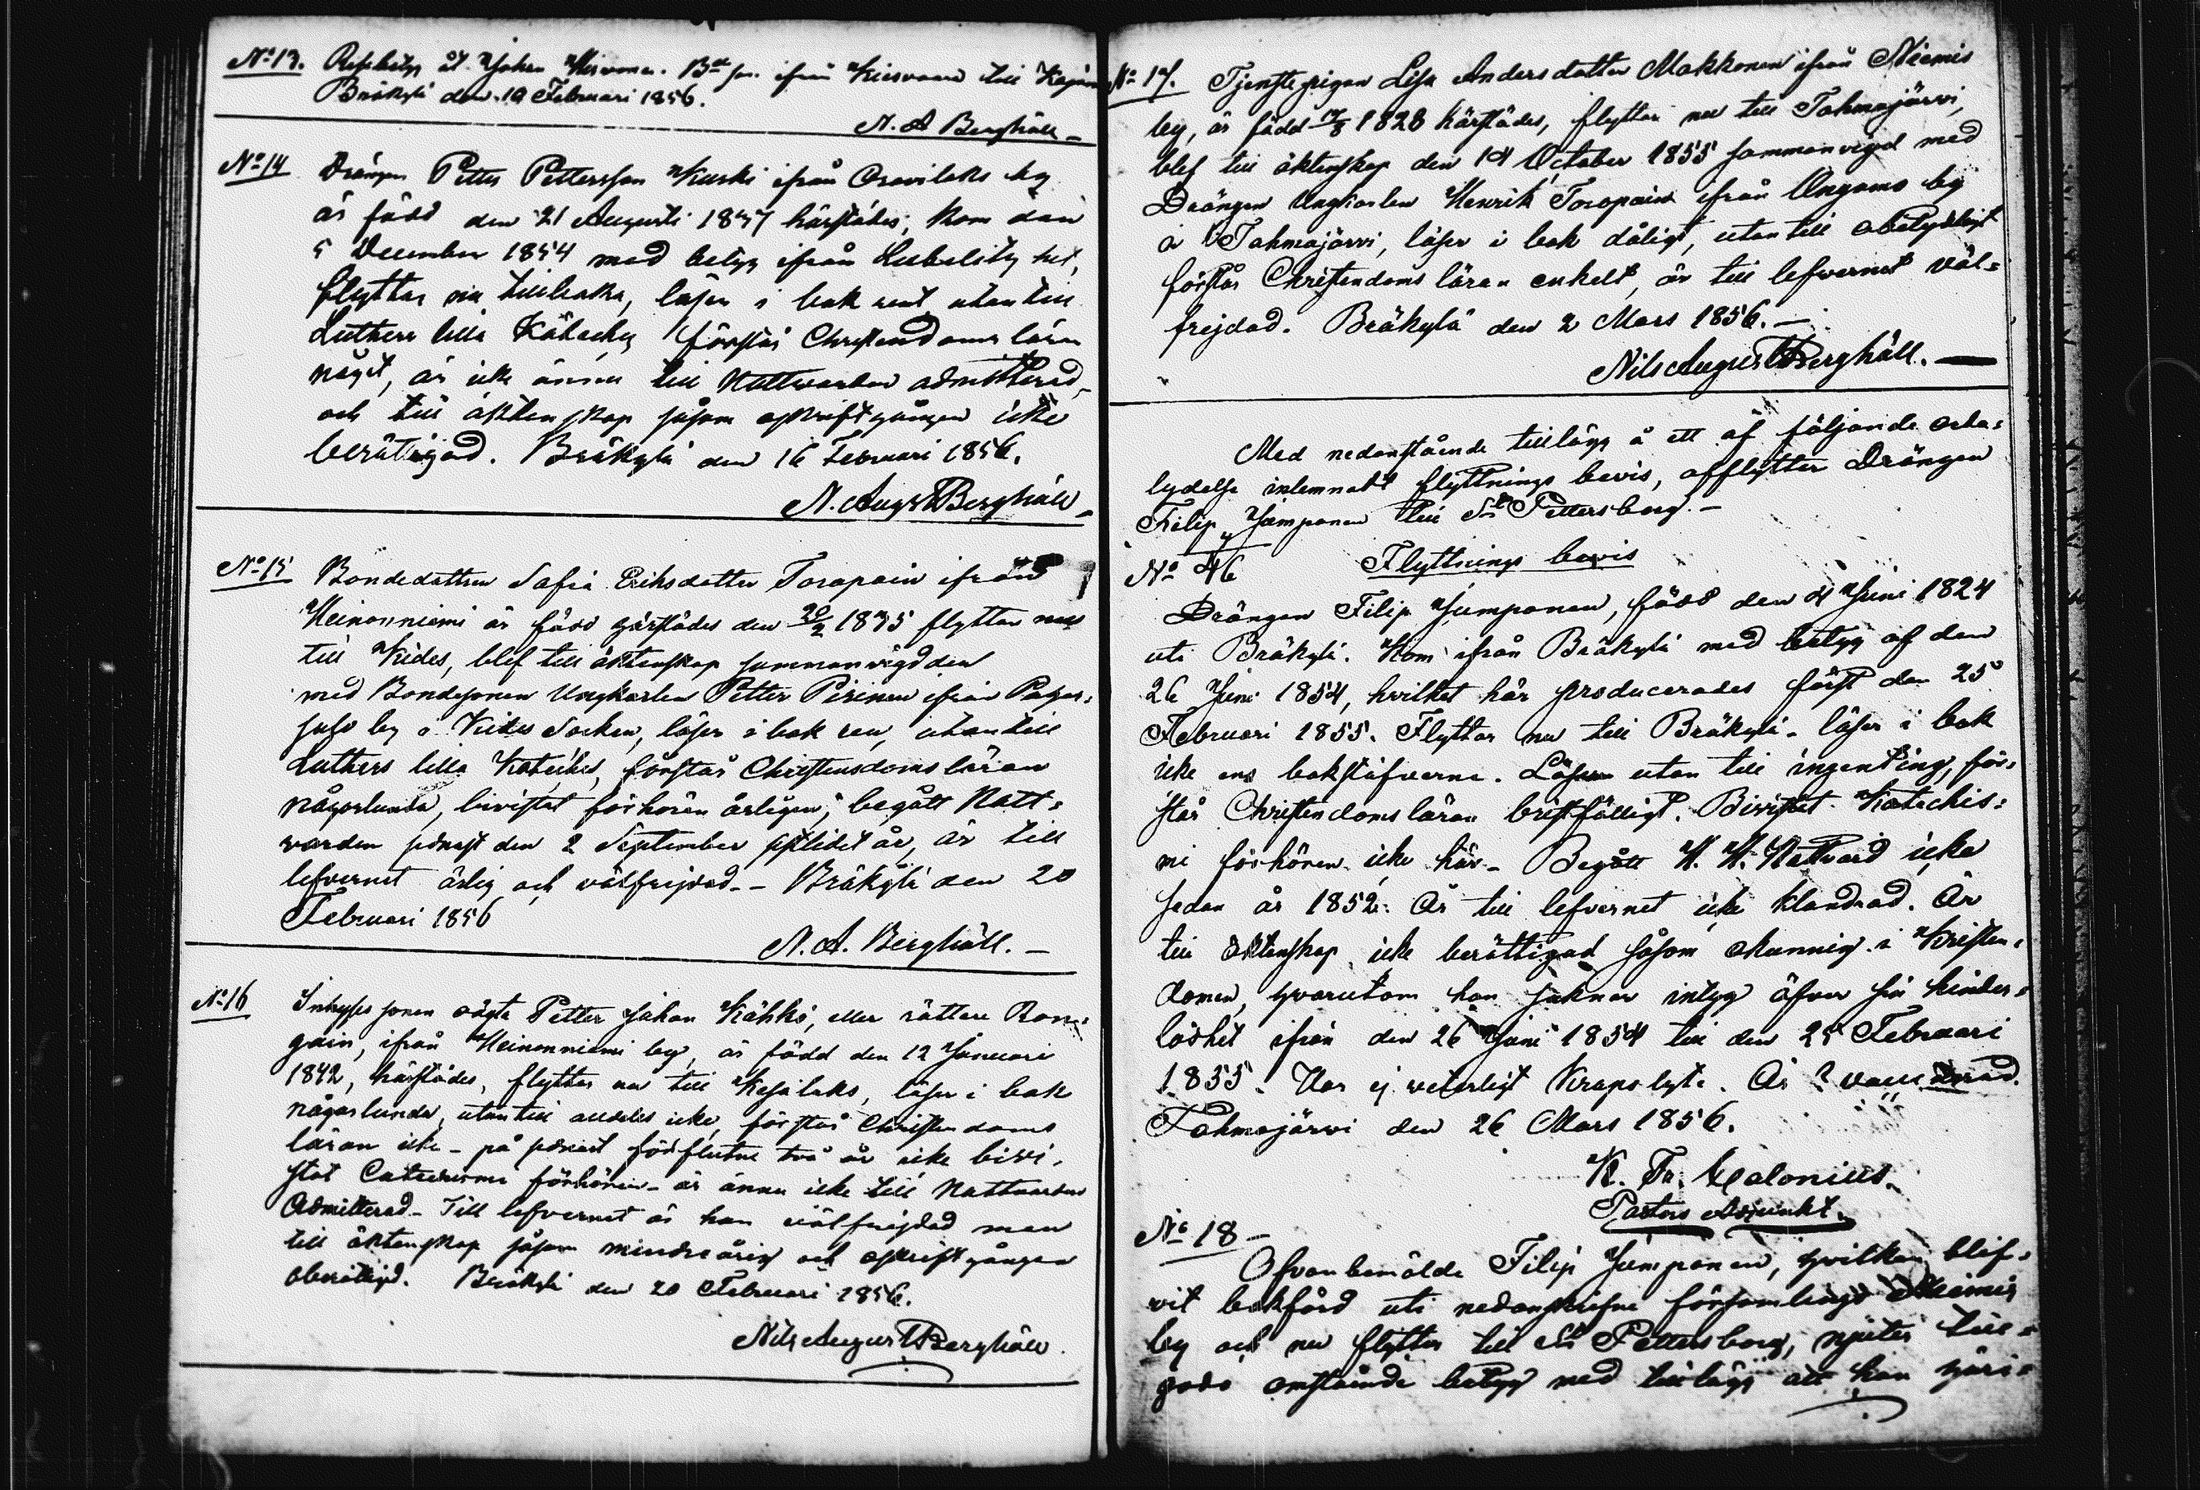 No 13. åt Johan ifrån till
Bräkylä den 10 Februari 1856.
N. A Berghäll
No 14 Drängen Petter Pettersson Kurki ifrån Oravilaks by
är född den 21 Augusti 1837 härstädes, kom den
5 December 1854 med betyg ifrån
flyttar nu tillbaka, läser i bok rent utantill
Luthers lilla förstår Christendoms läran
något, är icke ännu till Nattvarden admitterad
och till äktenskap såsom oskriftgången icke
berättigad. Bräkylä den 16 Februari 1856.
N. Augst Berghäll
No 15 Bondedottren Sofia Eriksdotter Toropain ifrån
Heinoniemi är född härstädes den 20/2 1835 flyttar nu
till Kides, blef till äktenskap sammanvigd den
med Bondesonen Ungkarlen Petter Pirinen ifrån
by i Kides Socken, läser i bok ren, utantill
Luthers lilla förstår Christendomsläran
någorlunda, bivistat förhören årligen, begått Natt-
varden senast den 2 September sistlidet år, är till
lefvernet ärlig och välfrejdad. – Bräkylä den 20
Februari 1856
N. A. Berghäll. –
No 16 Inhyses sonen oägta Petter Johan Kähkö, eller rättare Rom-
pain, ifrån Heinoniemi by, är född den 12 Januari
1842, härstädes, flyttar nu till Kesälaks, läser i bok
någorlunda, utantill alldeles icke, förstår Christendoms
läran icke – på senast förflutne två år icke bivi-
stat förhören – är ännu icke till Nattvarden
Admitterad – Till lefvernet är han välfrejdad men
till äktenskap såsom minderårig och oskriftgången
oberättigad. Bräkylä den 20 Februari 1856.
Nils August Berghäll
No 17. Tjenstepigan Lisa Andersdotter Makkonen ifrån Niemis
by, är född 1828 härstädes, flyttar nu till Tohmajärvi,
blef till äktenskap den 14 October 1855 sammanvigd med
Drängen Ungkarlen Henrik Toropain ifrån Onkamo by
i Tohmajärvi, läser i bok dåligt, utantill obetydligt
förstår Christendoms läran enkelt, är till lefvernet väl-
frejdad. Bräkylä den 2 Mars 1856. –
Nils August Berghäll. –
Med nedanstående tillägg å ett af följande orda-
lydelse inlemnadt flyttnings bevis, afflyttar Drängen
Filip Jumponen till St Pettersborg. –
No 46 Flyttnings bevis
Drängen Filip Jumponen, född den 4 Juni 1824
uti Bräkylä. Kom ifrån Bräkylä med betyg af den
26 Juni 1854, hvilket här producerades först den 25
Februari 1855. Flyttar nu till Bräkylä – läser i bok
icke ens bokstäfverne. Läser utan till ingenting, för-
står Christendomsläran bristfälligt. Bivistat Katechis-
mi förhören icke här – Begått H. H. Nattvard icke
sedan år 1852. Är till lefvernet icke klandrad. Är
till äktenskap icke berättigad såsom okunnig i Kristen-
domen, hvarutom han saknar intyg öfver sin hinder-
löshet ifrån den 26 Juni 1854 till den 25 Februari
1855. Har ej veterligt Är ?
Tohmajärvi den 26 Mars 1856.
K. Fr. Calonius.
Pastors Adjunkt.
No 18 –
Ofvanbemälde Filip Jumponen, hvilken blif-
vit bokförd uti nedanskrifne församlings Niemis
by och nu flyttar till St Pettersborg, njuter till-
godo omstående betyg med tillägg att han